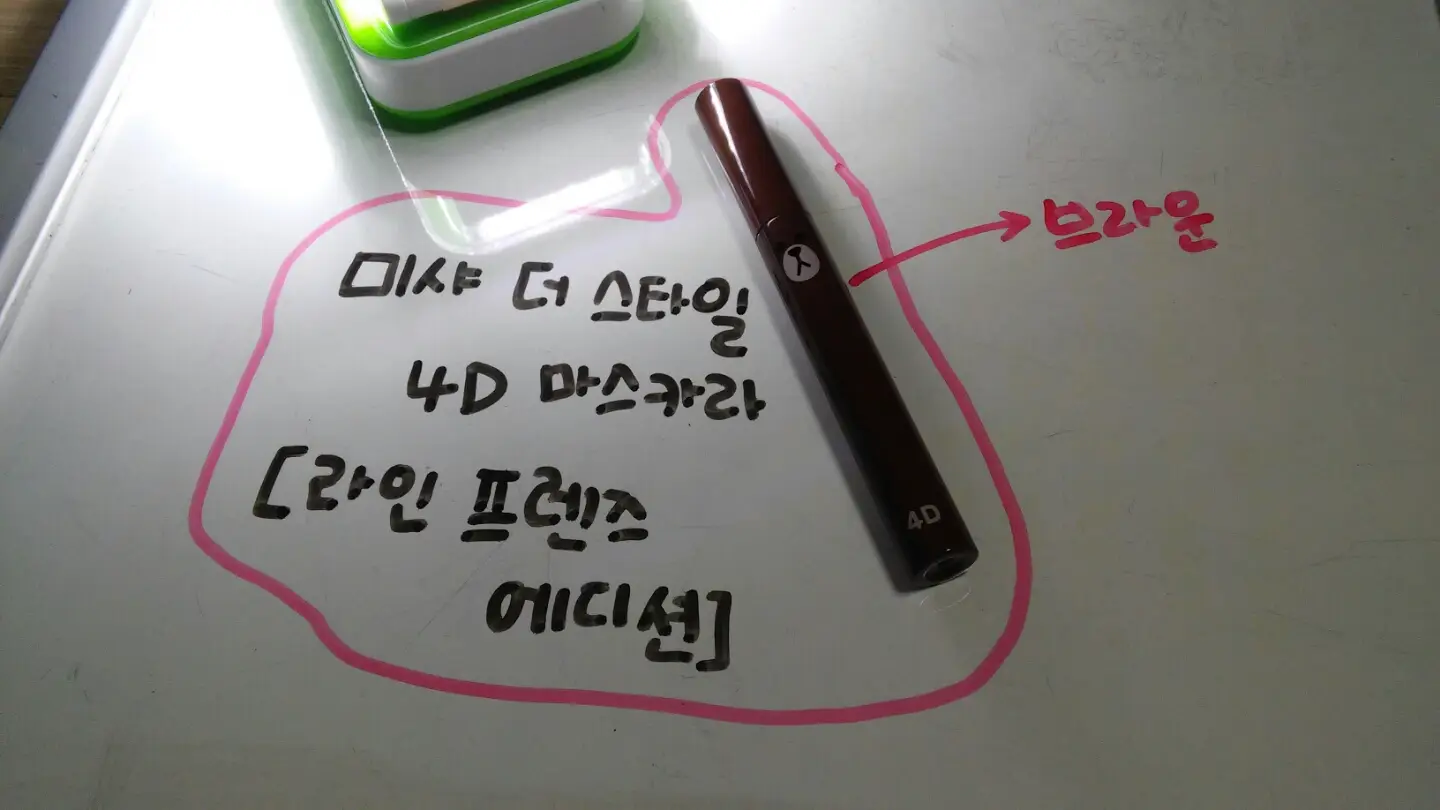 미샤 더 스타일
4D 마스카라
[라인 프렌즈
에디션]
브라운
4D